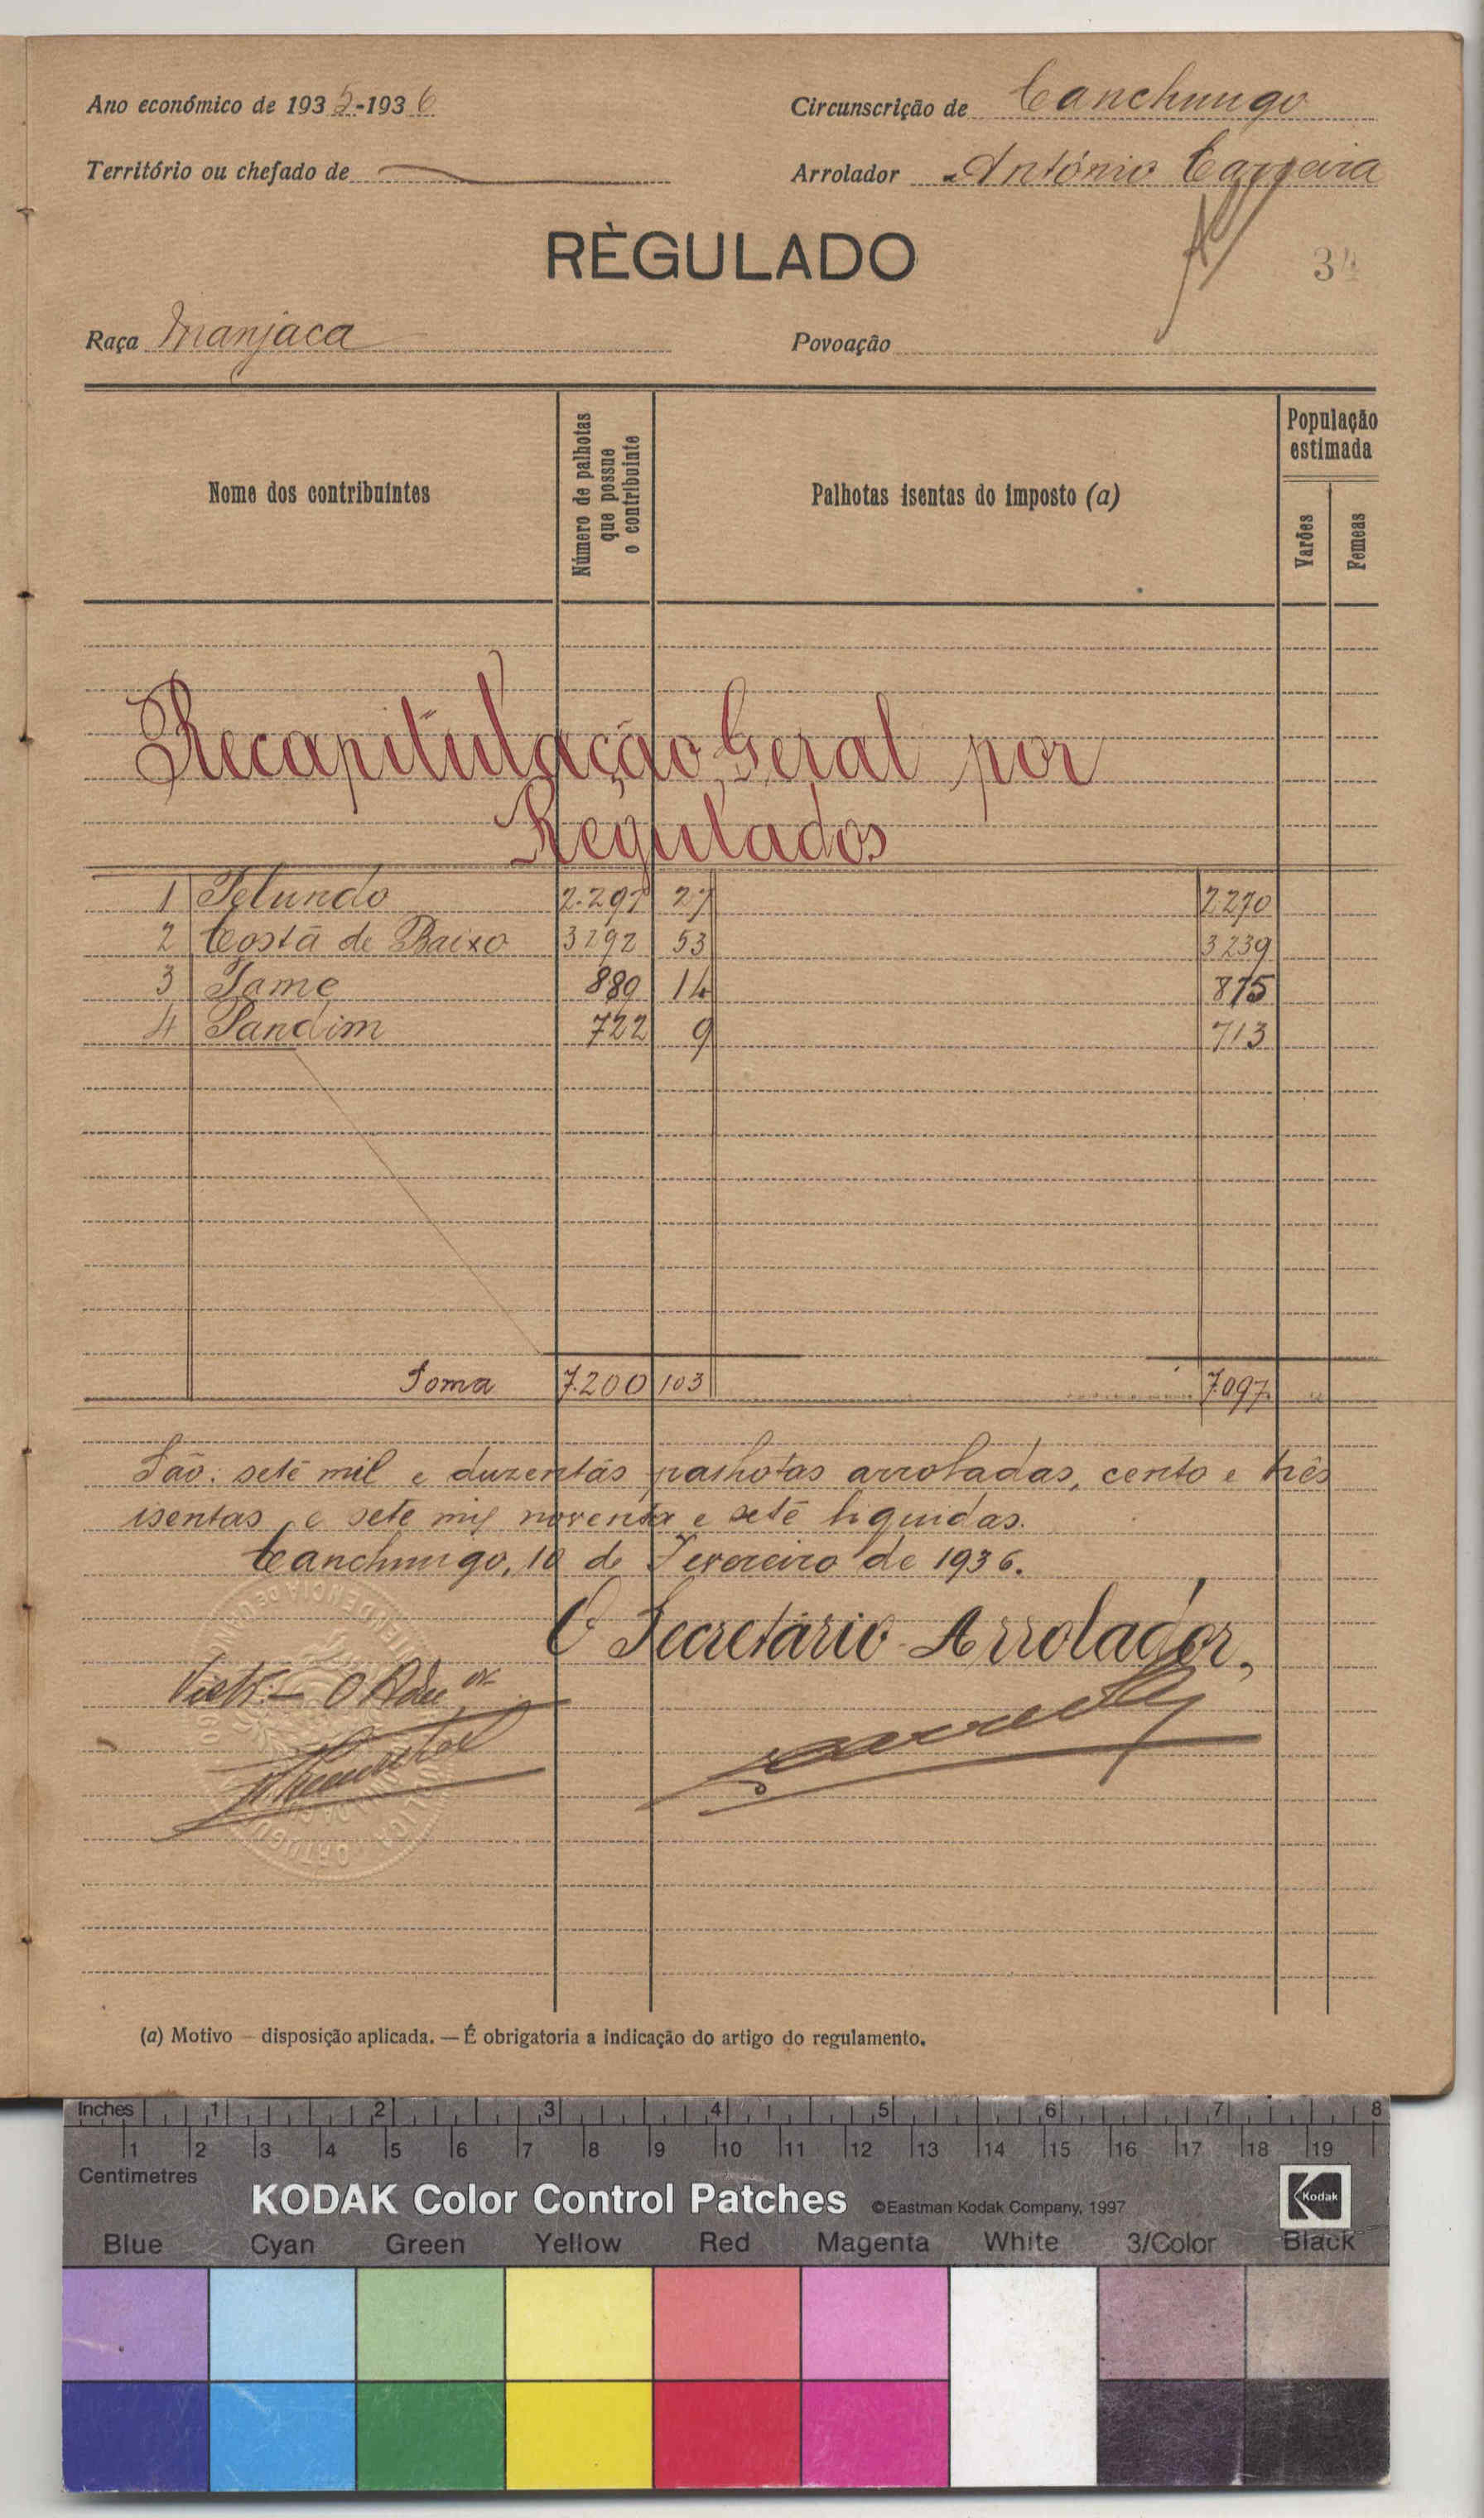 Ano económico de 1935-1936
Circunscrição de Canchungo
Território ou chefado de
Arrolador António Carreira
RÈGULADO
34
Raça Manjaca
Povoação
Nome dos contribuintes
Número de palhotas que possue o contribuinte
Palhotas isentas do imposto (a)
População estimada
Varões
Femeas
Recapitulação Geral por
Regulados
1 Pelundo 2.297 27 2270
2 Costa de Baixo 3292 53 3239
3 Jame 889 14 875
4 Pandim 722 9 713
Soma 7.200 103 7.097
São: sete mil e duzentas palhotas arroladas, cento e três
isentas e sete mil noventa e sete liquidas.
Canchungo, 10 de Fevereiro de 1936.
O Secretário Arrolador,
Visto — O Adm.or
(a) Motivo — disposição aplicada. — É obrigatoria a indicação do artigo do regulamento.
Inches 1 2 3 4 5 6 7 8
1 2 3 4 5 6 7 8 9 10 11 12 13 14 15 16 17 18 19
Centimetres
KODAK Color Control Patches ©Eastman Kodak Company, 1997 Kodak
Blue Cyan Green Yellow Red Magenta White 3/Color Black